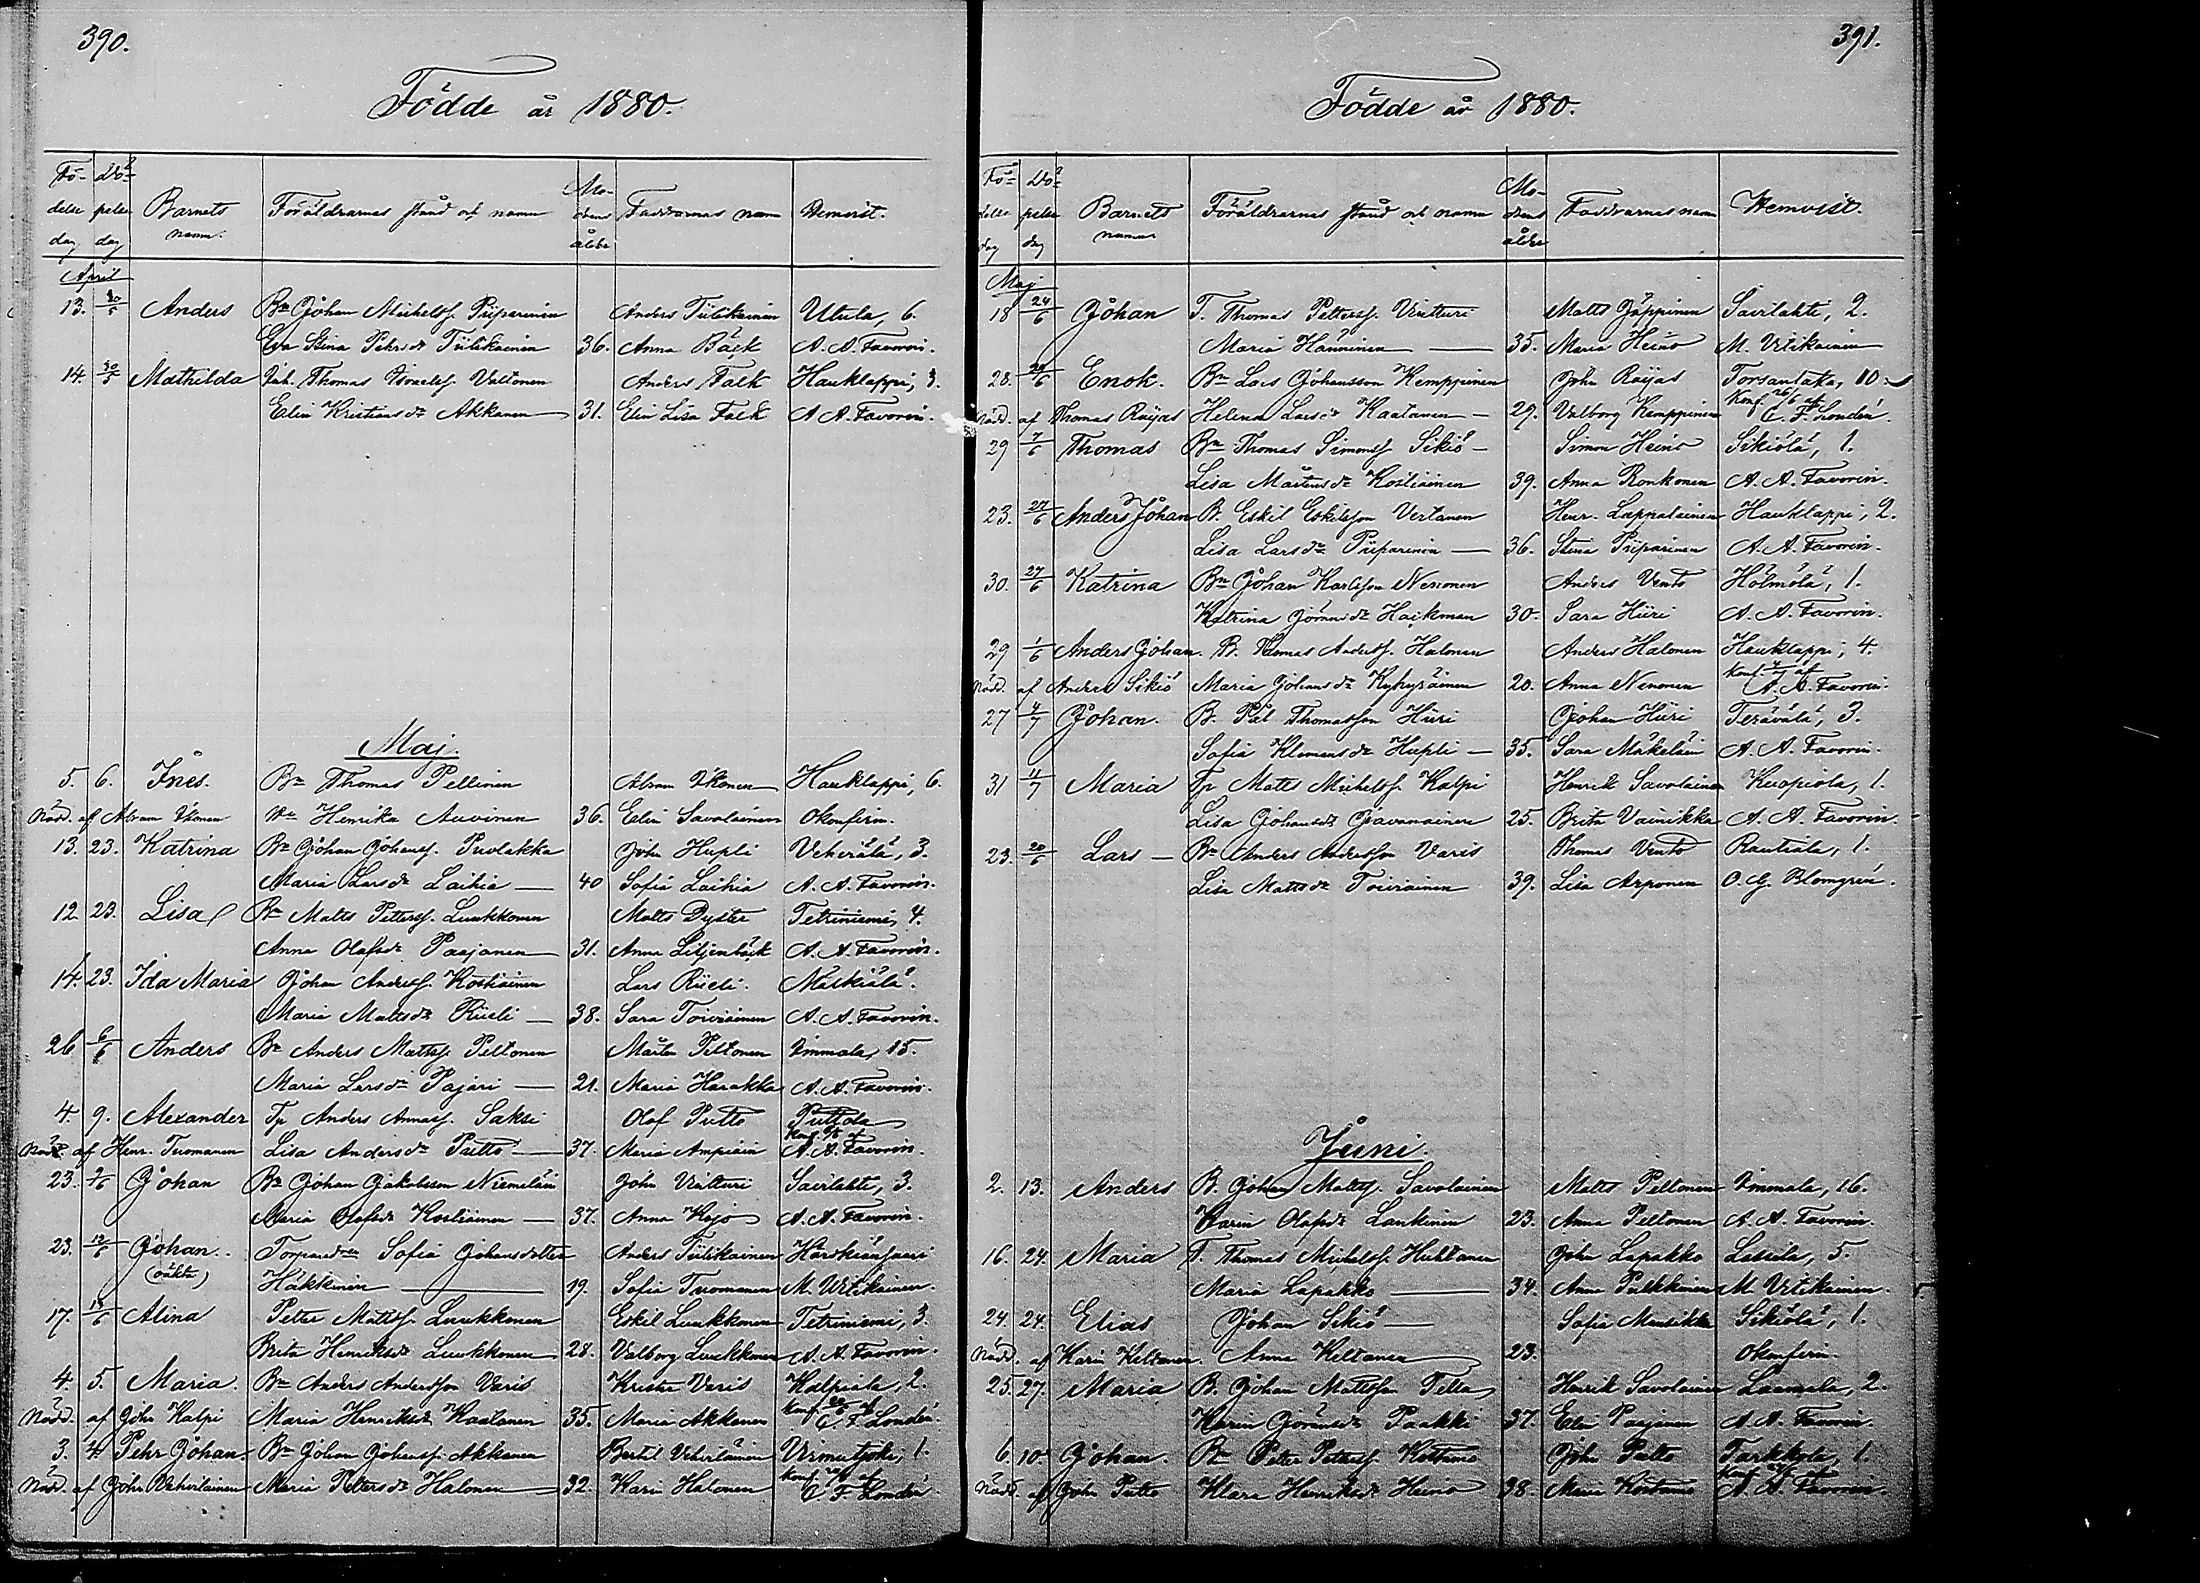 390.
Födde år 1880.
Fö- Dö-
delse pelse Barnets Föräldrarnas stånd och namn Mo- drens Faddrarnas namn Hemvist.
dag dag namn. ålder
April
13. 30/5 Anders Bn Johan Michelss. Piiparinen Anders Tiilikainen Utula, 6.
Eva Stina Pehrsdr Tiilikainen 36. Anna Bäck A. A. Favorin.
14. 30/5 Mathilda Inh. Thomas Israelss. Valtonen Anders Falk Hauklappi, 3.
Elin Kristiansdr Akkanen 31. Elin Lisa Falk A. A. Favorin.
Maj.
5. 6. Ines. Bn Thomas Pellinen Abram Ikonen Hauklappi, 6.
Nödd. af Abram Ikonen Hu Henrika Auvinen 36. Elin Savolainen Okonfirm.
13. 23. Katrina Bn Johan Johanss. Puolakka John Hupli Vekerälä, 3.
Maria Larsdr Laihia — 40 Sofia Laihia A. A. Favorin.
12 23. Lisa Bn Matts Petterss. Luukkonen Matts Dyster Tetriniemi, 4.
Anna Olofsdr Paajanen 31. Anna Liljenbäck A. A. Favorin.
14. 23. Ida Maria Johan Anderss. Kostiainen Lars Riieli.
Maria Mattsdr Riieli — 38. Sara Toiviainen A. A. Favorin.
26 6/6 Anders Bn Anders Mattss. Peltonen Mårten Peltonen Immala, 15.
Maria Larsdr Pajari — 21. Maria Harakka A. A. Favorin.
4. 9. Alexander Tp Anders Annass. Saksi Olof Putto Puttola
Nödd. af Henr. Tuomanen Lisa Andersdr Putto — 37. Maria Ampiain Konf. af A. A. Favorin.
23. Johan Bn Johan Jakobsson Niemeläin John Virtturi Savilahti, 3.
Maria Olofsdr Kostiainen — 37. Anna Kojo A. A. Favorin.
23. 13/6 Johan. Sofia Johansdotter Anders Tiilikainen
(oäkta) Häkkinen — 19. Sofia Tuomanen M. Vitikainen.
17. Alina Peter Mattss. Luukkonen Eskil Luukkonen Tetriniemi, 3.
Brita Henriksdr Luukkonen 28. Valborg Luukkonen A. A. Favorin.
4. 5. Maria. Bn Anders Andersson Varis Krister Varis Kalpiala, 2.
Nödd. af John Kalpi Maria Henriksdr Kaatanen 35. Maria Akkanen Konf. af C. F. Londén.
3. 4. Pehr Johan. Bn Johan Johanss. Akkanen Bertil Vehviläinen Virmutjoki, 1.
Nödd. af John Vehviläinen Maria Pettersdr Halonen — 32. Karin Halonen Konf. af C. F. Londén.
391.
Födde år 1880.
Fö- Dö-
delse pelse Barnets Föräldrarnas stånd och namn Mo- drens Faddrarnas namn Hemvist.
dag dag namn ålder
Maj
18 24/6 Johan T. Thomas Petterss. Virtturi Matts Jäppinen Savilahti, 2.
Maria Hänninen — 35. Maria Heino M. Vitikainen
28. 20/6 Enok. Bn Lars Johansson Kemppinen John Raijas Torsantaka, 10.
Nödd. af Thomas Raijas Helena Larsdr Kaatanen — 29. Valborg Kemppinen Konf. 20/6 af C. F. Londén.
29 7/6 Thomas Bn Thomas Simonss. Sikiö — Simon Heino Sikiölä, 1.
Lisa Mårtensdr Kostiainen 39. Anna Ronkonen A. A. Favorin.
23. 27/6 Anders Johan B. Eskil Eskilsson Vertanen Henr. Lappalainen Hauklappi, 2.
Lisa Larsdr Piiparinen — 36. Stina Piiparinen A. A. Favorin.
30. 27/6 Katrina Bn Johan Karlsson Nenonen Anders Vento Hölmölä, 1.
Katrina Göransdr Haikman 30. Sara Hiiri A. A. Favorin.
29 1/6 Anders Johan. B. Thomas Anderss. Halonen Anders Halonen Hauklappi, 4.
Nödd. af Anders Sikiö Maria Johansdr Kyhyräinen 20. Anna Nenonen Konf. af A. A. Favorin.
27 4/7 Johan. B. Pål Thomasson Hiiri Johan Hiiri Terävälä, 3.
Sofia Klemensdr Hupli — 35. Sara Mäkeläin A. A. Favorin.
31 4/7 Maria Tp Matts Michelss. Kalpi Henrik Savolainen Kuopiola, 1.
Lisa Johansdr Javanainen 25. Brita Vainikka A. A. Favorin.
23. 20/6 Lars — Bn Anders Andersson Varis Thomas Vento Rautiala, 1.
Lisa Mattsdr Toiviainen 39. Lisa Arponen O. G. Blomgrén.
Juni.
2. 13. Anders B. Johan Mattss. Savolainen Matts Peltonen Immala, 16.
Karin Olofsdr Lankinen 23. Anna Peltonen A. A. Favorin.
16. 24. Maria T. Thomas Michelss. Huhtanen John Lapakko Lissila, 5.
Maria Lapakko — 34. Anna Pulkkinen M. Vitikainen.
24. 24. Elias Johan Sikiö — Sofia Mensikka Sikiölä, 1.
Nödd. af Karin Keltanen. Anna Keltanen 23. Okonfirm.
25. 27. Maria B. Johan Mattsson Tella Henrik Savolainen Laamala, 2.
Karin Göransdr Paakki 37. Elin Paajanen A. A. Favorin.
6. 10. Johan. Bn Peter Petterss. John Putto Tarkkola, 1.
Nödd. af John Putto Klara Henriksdr Heino 38. Maria Konf. af A. A. Favorin.